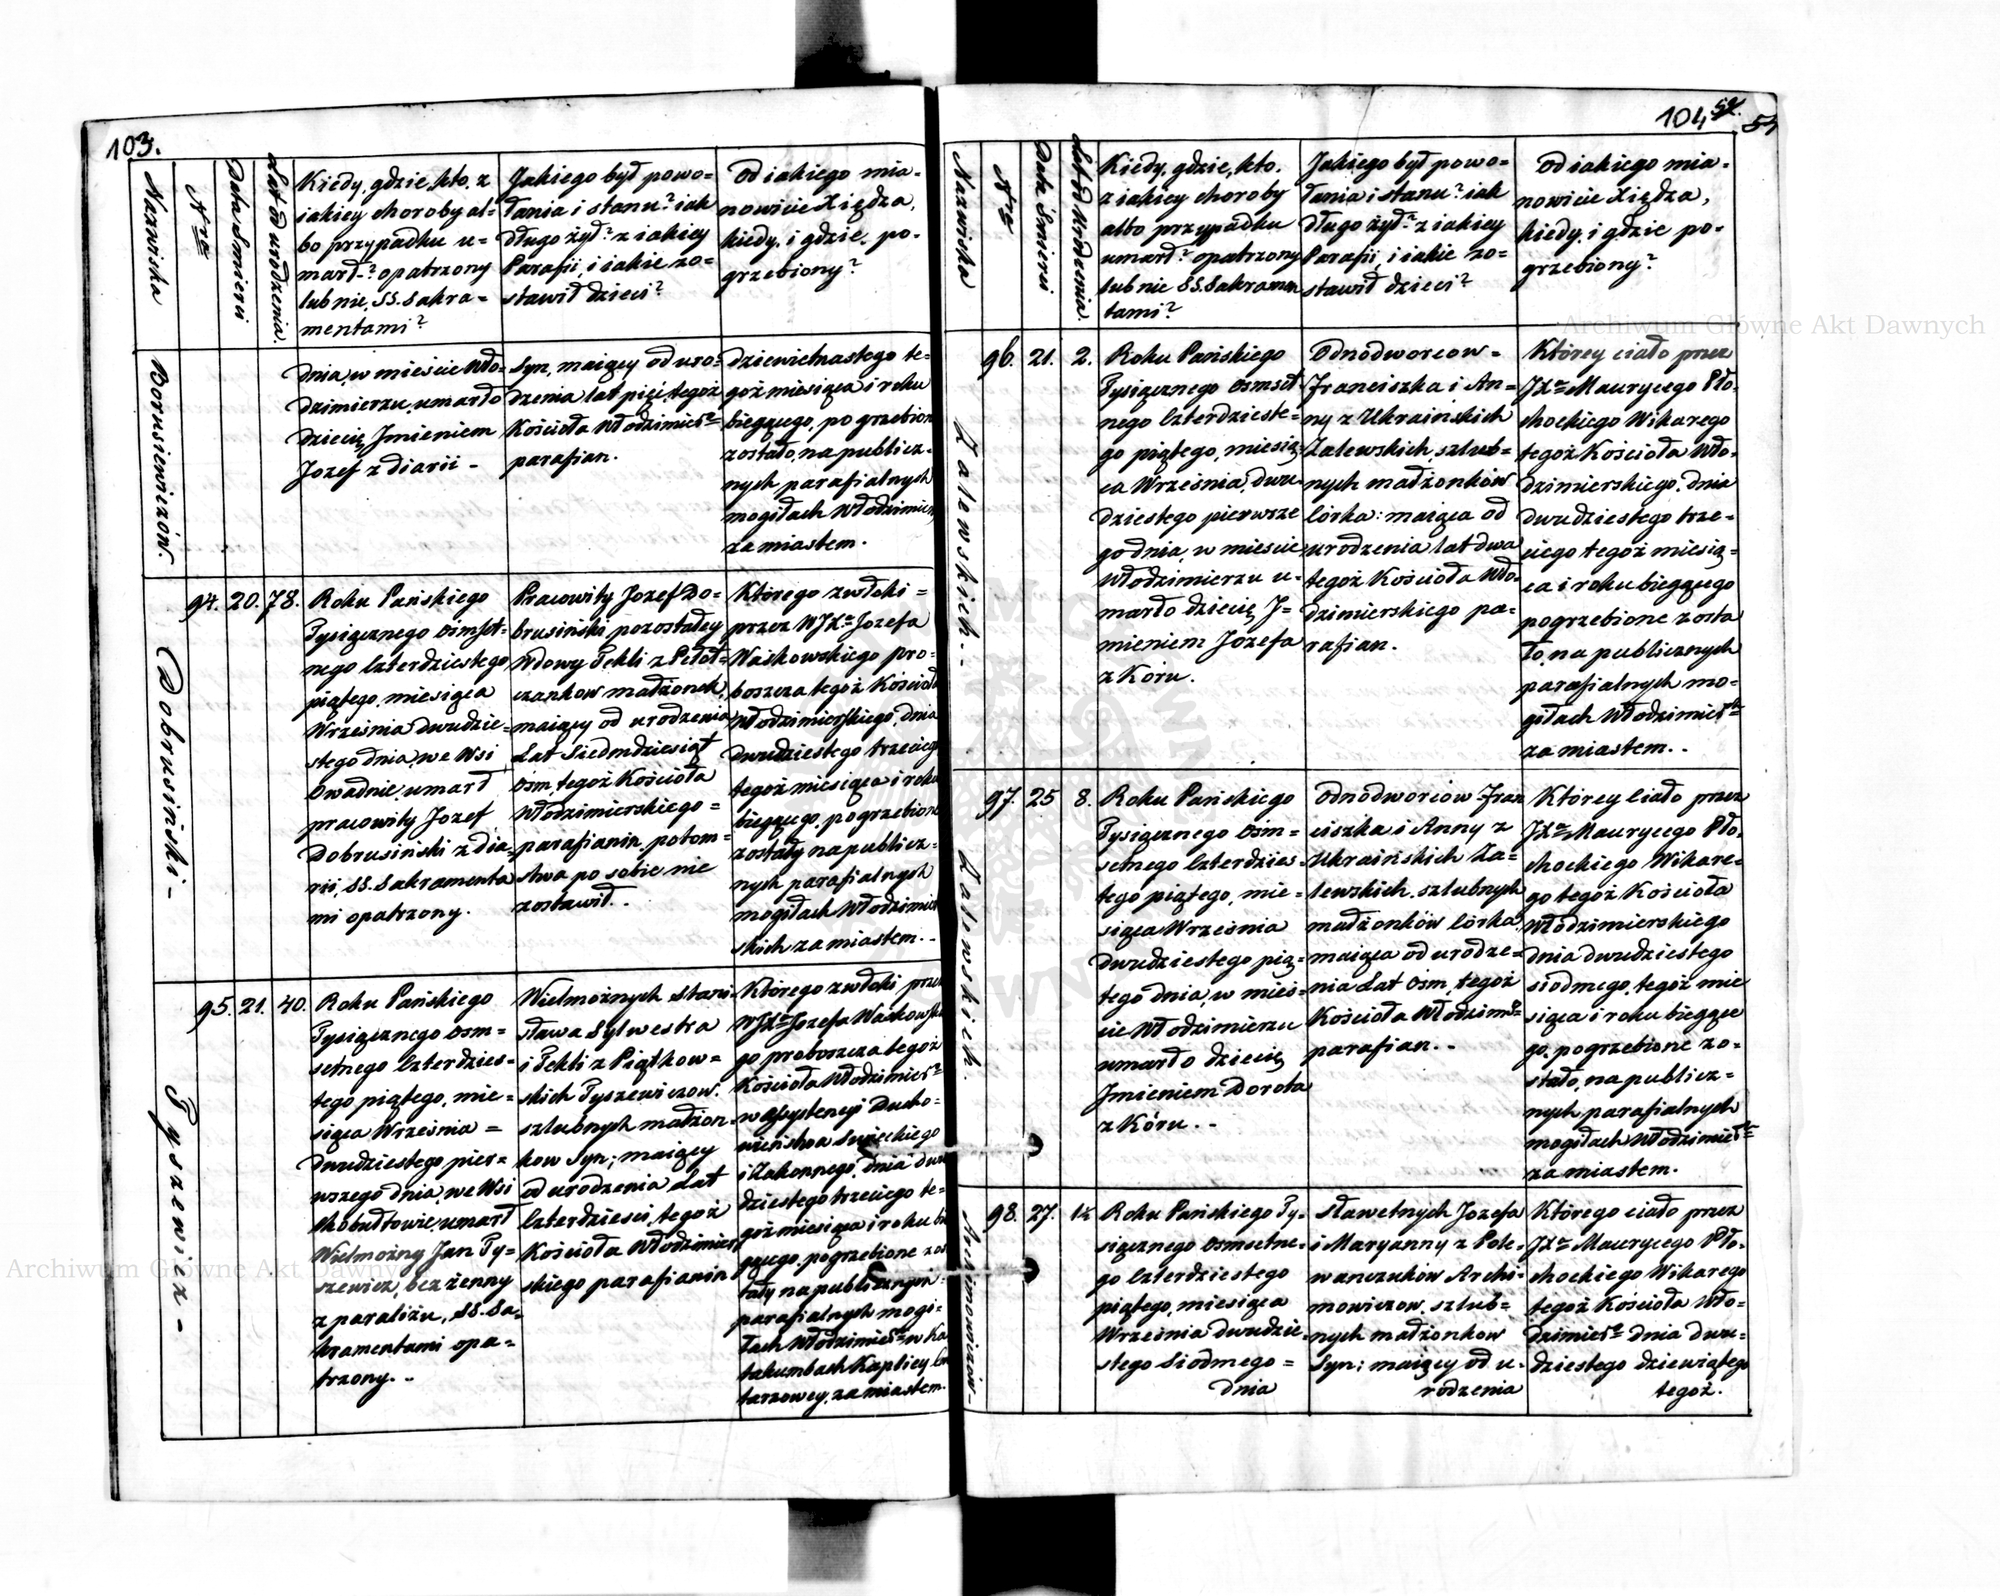 103.
Nazwiska
Nro
Data Smierci
Lat od urodzenia.
Kiedy, gdzie, kto, z
iakiey choroby al=
bo przypadku u=
marł? opatrzony
lub nie, SS. Sakra=
mentami?
Jakiego był powo=
łania i stanu? iak
długo żył? z iakiey
Parafii, i iakie zo=
stawił dzieci?
Od iakiego mia=
nowicie Xiędza,
kiedy, i gdzie, po=
grzebiony?
Borusiewiczów.
dnia, w mieście Wło=
dzimierzu, umarło
dziecię, Jmieniem
Jozef z diarii -
Syn, maiący od uro=
dzenia lat pięć, tegoż
Kościoła Włodzimiersº
parafian.
dziewietnastego te=
goż miesiąca i roku
bieżącego, pogrzebion
zostało, na publicz=
nych parafialnych
mogiłach Włodzimier
za miastem.
Dobrusiński -
94. 20. 78.
Roku Pańskiego
Tysiącznego Osmset=
nego Czterdziestego
piątego, miesiąca
Września dwudzie=
stego dnia, we Wsi
Owadnie, umarł
pracowity Jozef
Dobrusiński z dia=
rii, SS. Sakramenta
mi opatrzony.
Pracowity Jozef Do=
brusiński pozostałey
Wdowy Tekli z Pełeł=
czankow małżonek,
maiący od urodzenia
Lat Siedmdziesiąt
Osm, tegoż Kościoła
Włodzimierskiego =
parafianin, potom=
stwa po sobie nie
zostawił.
Którego zwłoki =
przez WJXª Jozefa
Waśkowskiego pro=
boszcza tegoż Kościoła
Włodzimierskiego, dnia
dwudziestego trzeciego
tegoż miesiąca i roku
bieżącego, pogrzebione
zostały na publicz=
nych parafialnych
mogiłach Włodzimier
skich za miastem..
Tyszewicz -
95. 21. 40.
Roku Pańskiego
Tysiącznego Osm=
setnego Czterdzies=
tego piątego, mie=
siąca Września =
dwudziestego pier=
wszego dnia, we Wsi
Chobułtowie, umarł
Wielmożny Jan Ty=
szewicz, bez żenny
z paraliżu, SS. Sa=
kramentami opa=
trzony..
Wielmożnych Stani
sława Sylwestra
i Tekli z Piątkow=
skich Tyszewiczow.
szlubnych małżon=
kow Syn; maiący
od urodzenia Lat
Czterdzieści, tegoż
Kościoła Włodzimier
skiego parafianin
Którego zwłoki przez
WJXª Jozefa Waśkowski
go proboszcza tegoż
Kościoła Włodzimiersº
w assystencyi Ducho=
wieństwa Swieckiego
i Zakonnego, dnia dwu
dziestego trzeciego te=
goż miesiąca i roku bie
żącego, pogrzebione zos
tały na publicznych
parafialnych mogi=
łach Włodzimiersº w Ka
takumbach Kaplicy
tarzowey, za miastem.
104
Nazwiska
Nro
Data Smierci
Lat od Urodzenia.
Kiedy, gdzie, kto.
z iakiey choroby
albo przypadku
umarł? opatrzony
lub nie SS. Sakramen
tami?
Jakiego był powo=
łania i stanu? iak
długo żył? z iakiey
Parafii, i iakie zo=
stawił dzieci?
Od iakiego mia=
nowicie Xiędza,
kiedy, i gdzie po=
grzebiony?
Zalewskich..
96. 21. 2.
Roku Pańskiego
Tysiącznego Osmset
nego Czterdzieste=
go piątego, miesią
ca Września, dwu=
dziestego pierwsze
go dnia, w mieście
Włodzimierzu u=
marło dziecię J=
mieniem Jozefa
z Kóru.
Odnodworcow =
Franciszka i An=
ny z Ukraińskich
Zalewskich, szlub=
nych małżonków
Córka: maiąca od
urodzenia lat dwa
tegoż Kościoła Wło=
dzimierskiego pa=
rafian.
Którey ciało przez
JXª Maurycego Pło=
chockiego Wikarego
tegoż Kościoła Wło=
dzimierskiego, dnia
dwudziestego trze=
ciego tegoż miesią=
ca i roku bieżącego
pogrzebione zosta
ło, na publicznych
parafialnych mo=
giłach Włodzimiersº
za miastem..
Zalewskich.
97. 25 8.
Roku Pańskiego
Tysiącznego Osm=
setnego Czterdzies=
tego piątego, mie=
siąca Września
dwudziestego pią=
tego dnia, w mieś=
cie Włodzimierzu
umarło dziecię
Jmieniem Dorota
z Kóru..
Odnodworcow Fran
ciszka i Anny z
Ukraińskich Za=
lewskich, szlubnych
małżonków Córka,
maiąca od urodze=
nia Lat Osm, tegoż
Kościoła Włodzimº
parafian..
Którey Ciało przez
JXª Maurycego Pło=
chockiego Wikare=
go tegoż Kościoła
Włodzimierskiego
dnia dwudziestego
siodmego, tegoż mie
siąca i roku bieżące
go, pogrzebione zo=
stało, na publicz=
nych parafialnych
mogiłach Włodzimiersº
za miastem.
Archimowiczów -
98. 27. 1½
Roku Pańskiego Ty=
siącznego Osmsetne=
go Czterdziestego
piątego, miesiąca
Września dwudzie=
stego Siodmego =
dnia
Sławetnych Jozefa
i Maryanny z Pole=
wanczuków Archi=
mowiczow, szlub=
nych małżonkow
Syn: maiący od u=
rodzenia
Którego ciało przez
JXª Maurycego Pło=
chockiego Wikarego
tegoż Kościoła Wło=
dzimiersº dnia dwu=
dziestego dziewiątego
tegoż.
Archiwum Główne Akt Dawnych
Archiwum Główne Akt Dawnych